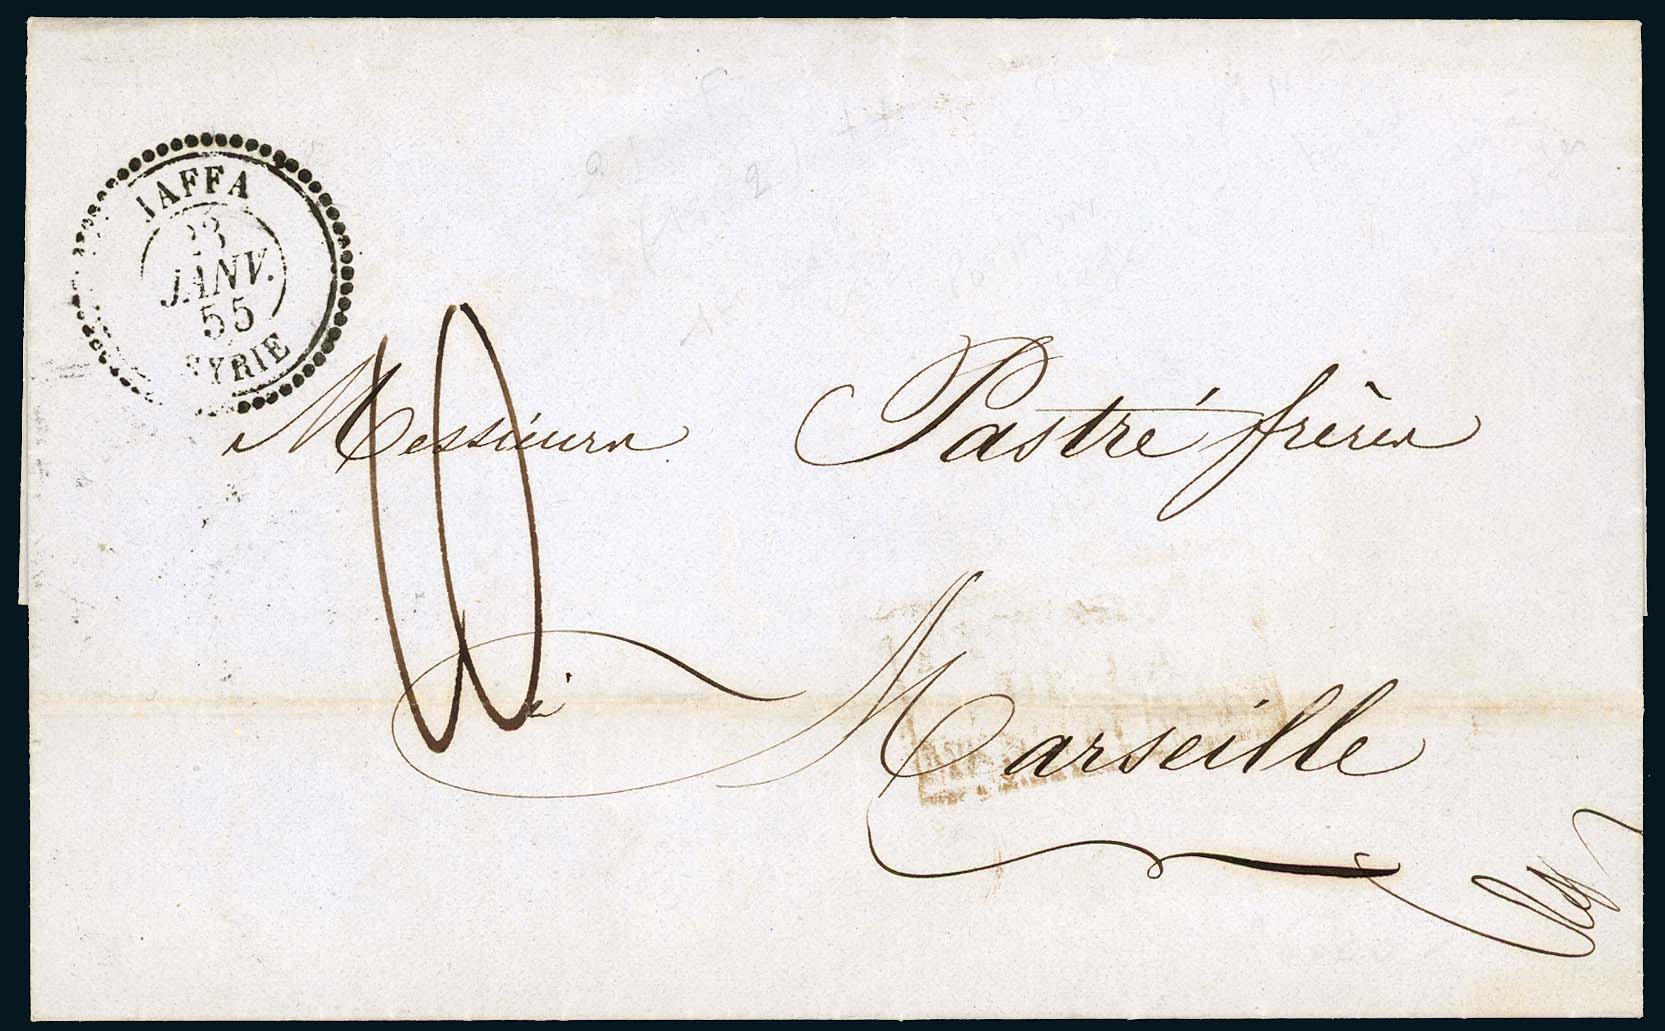 JAFFA
23
JANV.
55
SYRIE
Messieurs Pastré frères
10
à Marseille